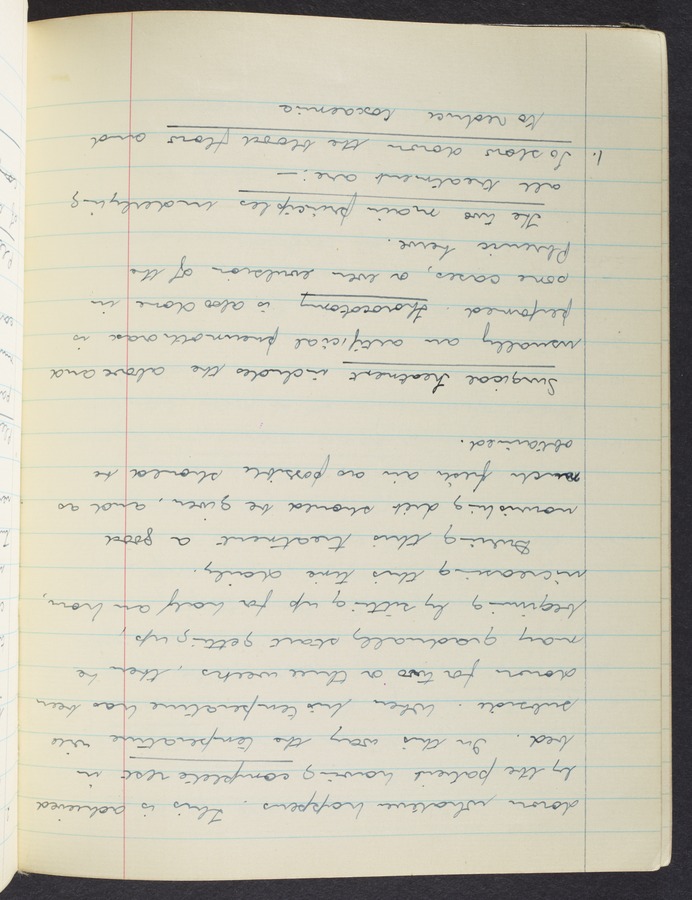 down, whatever happens. This is achieved
by the patient having complete rest in
bed. In this way the temperature will
subside. When his temperature has been
down for two or three weeks, then he
may gradually start getting up,
beginning by sitting up for half an hour,
increasing this time daily.
During this treatment a good
nourishing diet should be given, and as
much fresh air as possible should be
obtained.
Surgical treatment includes the above and
usually an artificial pneumothorax is
performed. Thoracotomy is also done in
some cases, or even evulsion of the
Phrenic nerve.
The two main principles underlying
all treatment are:—
1. To slow down the blood flow and
to reduce toxaemia